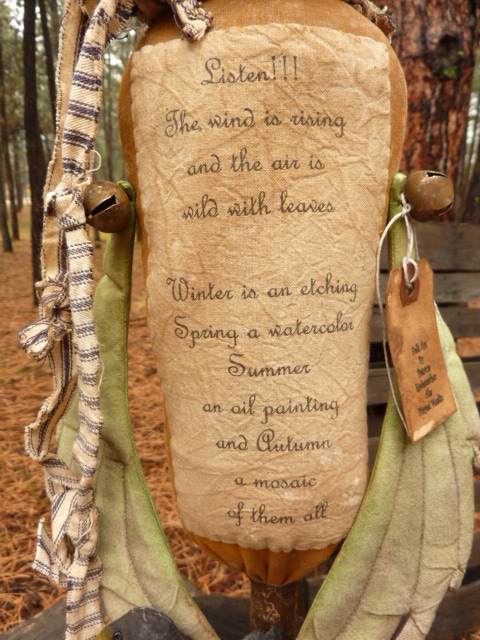 Listen!!!
The wind is rising
and the air is
wild with leaves
Winter is an etching
Spring a watercolor
Summer
an oil painting
and Autumn
a mosaic
of them all
Folk Art
By